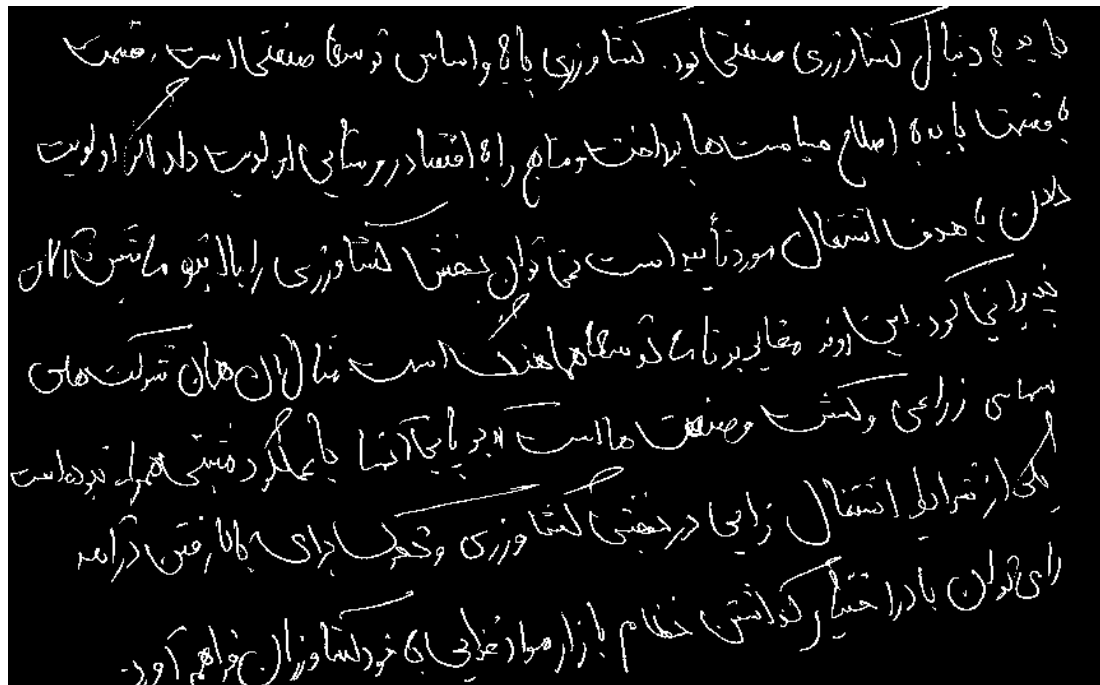 باید به دنبال کشاورزی صنعتی بود. کشاورزی پایه و اساس توسعه صنعتی است. قیمت
به قیمت باید به اصلاح سیاست‌ها پرداخت و منابع را به اقتصاد روستایی اولویت داد اگر اولویت
دادن با هدف اشتغال مورد تأیید است نمی‌توان بخش کشاورزی را بالاتر
پذیرایی کرد. این روند مغایر برنامه توسعه هماهنگ است مثال آن همان شرکت‌های
سهامی زراعی و کشت و صنعت ها است که برپایی آنها با عملکرد مثبتی همراه نبوده است
یکی از شرایط اشتغال زایی در بخش کشاورزی و تحرک برای بالا رفتن درآمد
را می‌توان با در اختیار گذاشتن نظام بازار مواد غذایی به خود کشاورزان فراهم آورد.